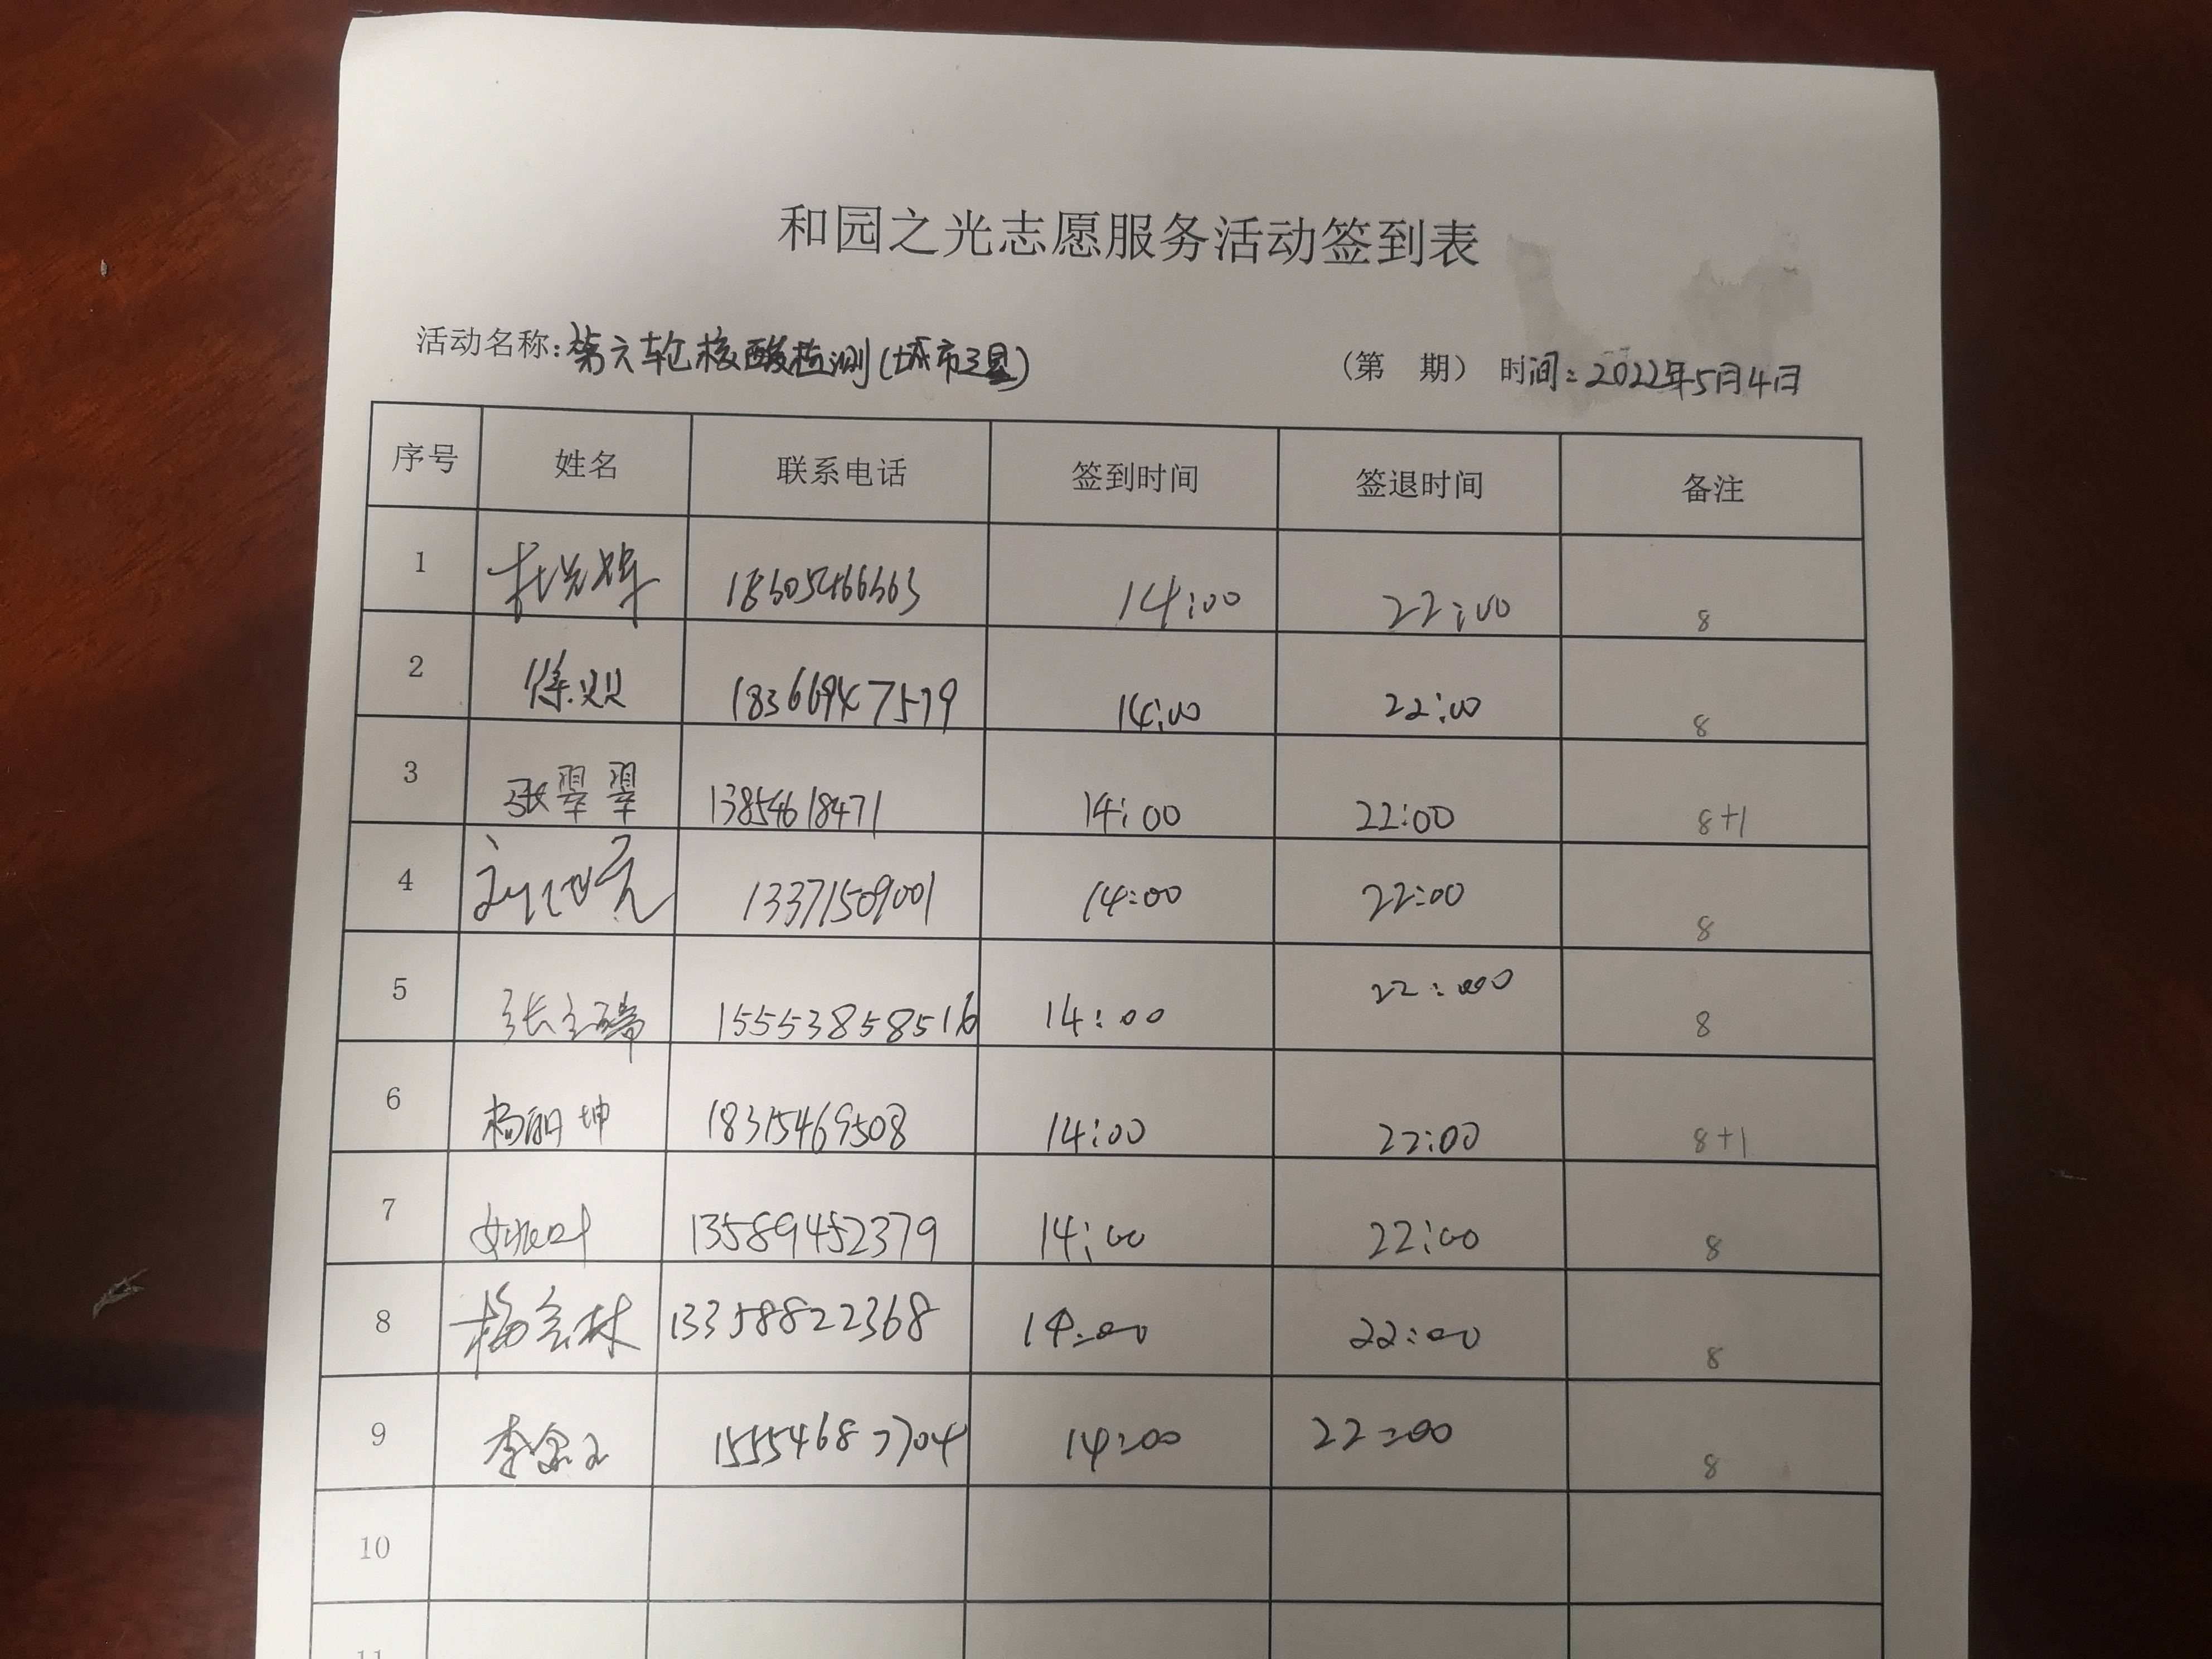 和园之光志愿服务活动签到表
活动名称:第六轮核酸检测(城市之星) (第 期) 时间:2022年5月4日
序号 姓名 联系电话 签到时间 签退时间 备注
1 杜光辉 14:00 22:00 8
2 徐 18366947579 14:00 22:00 8
3 张翠翠 13854618471 14:00 22:00 8+1
4 13371509001 14:00 22:00 8
5 15553858516 14:00 22:00 8
6 杨丽坤 18315469508 14:00 22:00 8+1
7 13589452379 14:00 22:00 8
8 杨会林 13358822368 14:00 22:00 8
9 李金 15554687704 14:00 22:00 8
10
11